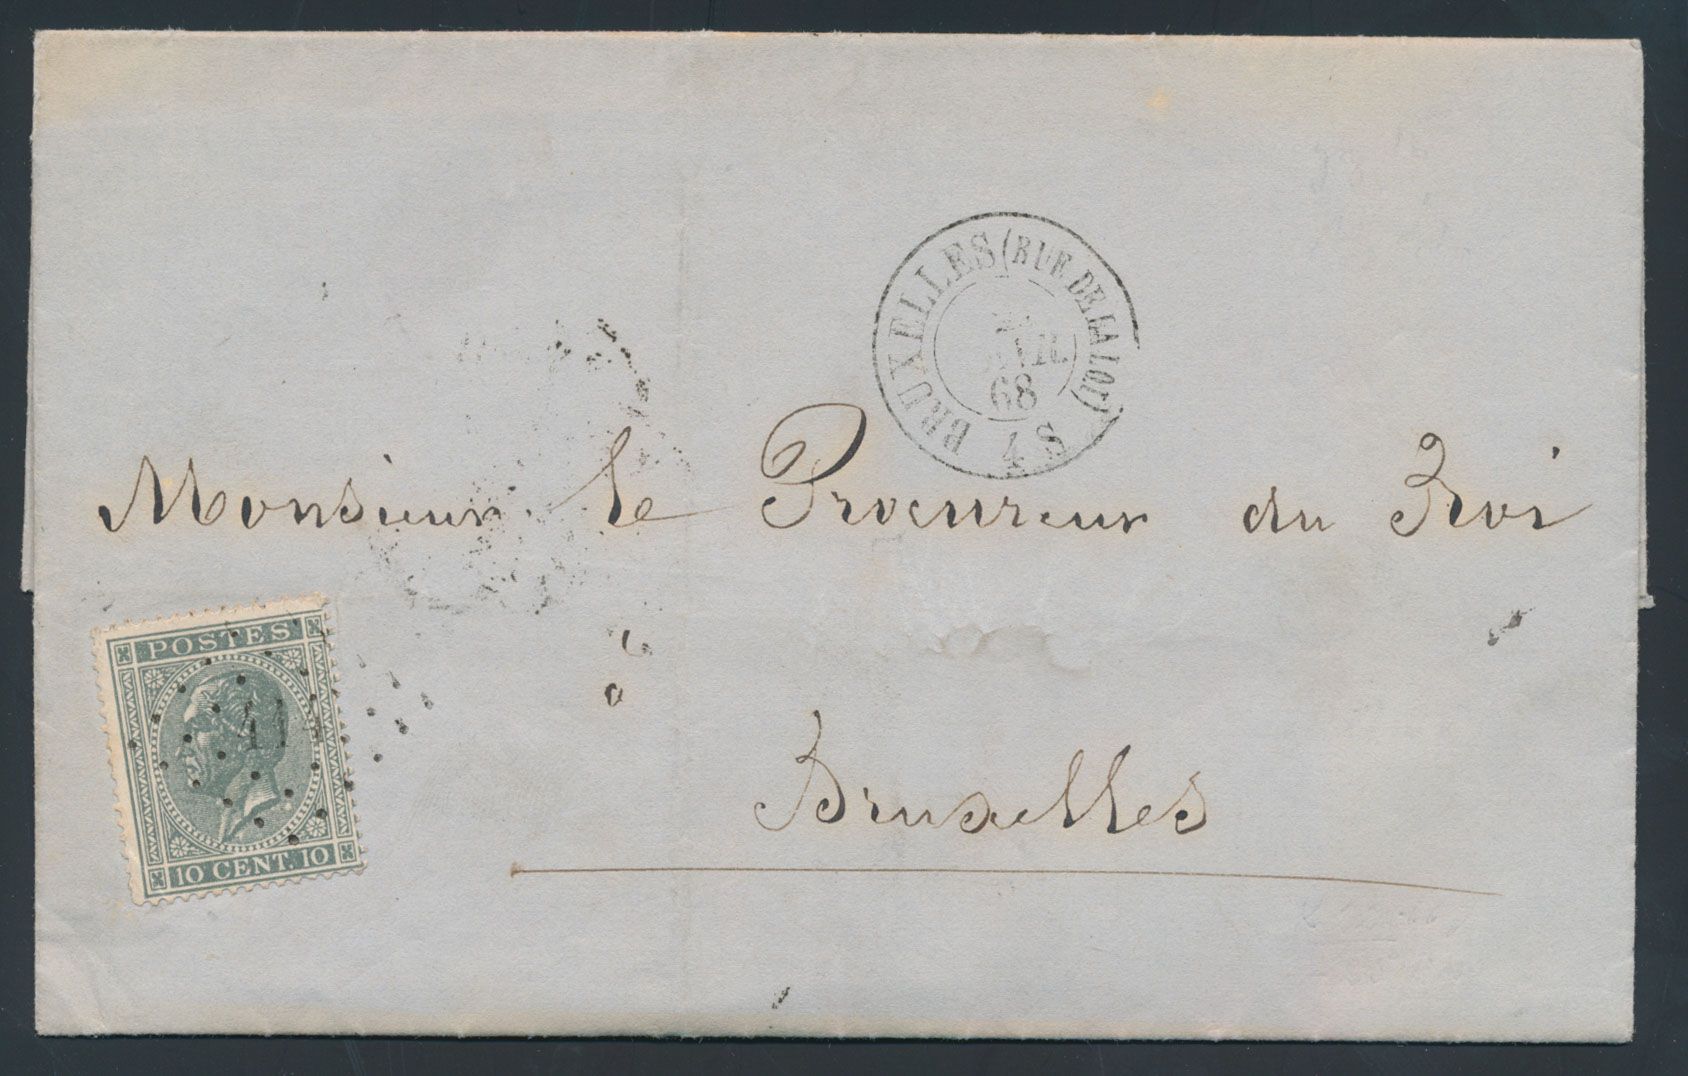 BRUXELLES (RUE DE LA LOI)
AVR.
68
4 S
Monsieur le Procureur du Roi
à
Bruxelles
POSTES
10 CENT. 10